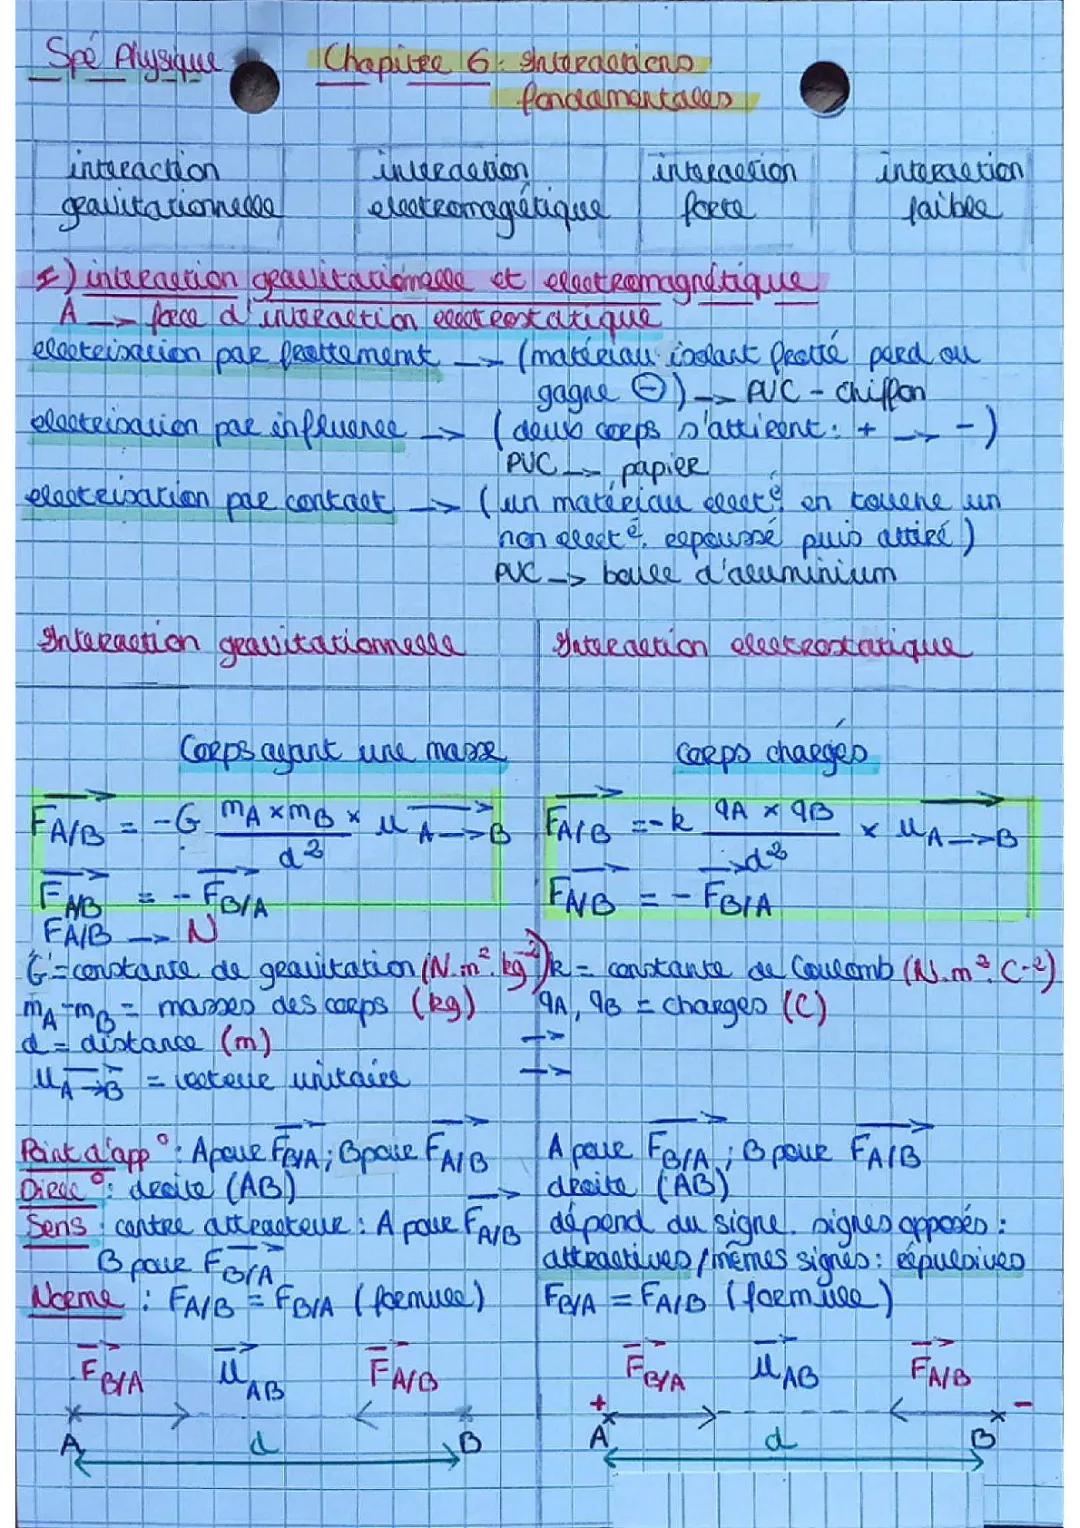 Spé Physique Chapitre 6: Interactions
fondamentales
interaction gravitationnelle
interaction electromagétique
interaction forte
interaction faible
I) interaction gravitationnelle et electromagnétique
A → force d'interaction electrostatique
electrisation par frottement → (matériau isolant frotté perd ou
gagne ⊖) → PVC - chiffon
electrisation par influence → (deux corps s'attirent: + → -)
PVC → papier
electrisation par contact → (un matériau elect é en touche un
non elect é. repoussé puis attiré)
PVC → boule d'aluminium
Interaction gravitationnelle
Corps ayant une masse
F A/B = -G mA × mB / d² × u A→B
F A/B = - F B/A
FA/B → N
G = constante de gravitation (N.m².kg⁻²)
mA - mB = masses des corps (kg)
d = distance (m)
u A→B = vecteur unitaire
Point d'app°: A pour FB/A; B pour FA/B
Direc°: droite (AB)
Sens: centre attracteur: A pour FA/B
B pour FB/A
Norme: FA/B = FB/A (formule)
FB/A uAB FA/B
A d B
Interaction electrostatique
corps chargés
FA/B = -k qA × qB / d² × u A→B
FA/B = - FB/A
k = constante de Coulomb (N.m².C-2)
qA, qB = charges (C)
→
→
A pour FB/A; B pour FA/B
droite (AB)
dépend du signe. signes opposés:
attractives/mêmes signes: répulsives
FB/A = FA/B (formule)
FB/A uAB FA/B
+ -
A d B